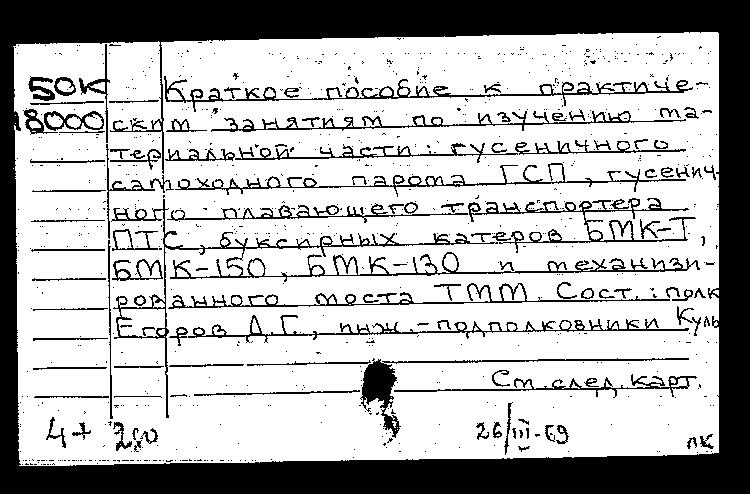 50К Краткое пособие к практиче-
18000 ским занятиям по изучению ма-
териальной части: гусеничного
самоходного парома ГСП, гусенич-
ного плавающего транспортера
ПТС, буксирных катеров БМК-Т,
БМК-150, БМК-130 и механизи-
рованного моста ТММ. Сост.: полк
Егоров Д.Г., инж.-подполковники Куль
См. след. карт.
4+ 26/III-69
ПК